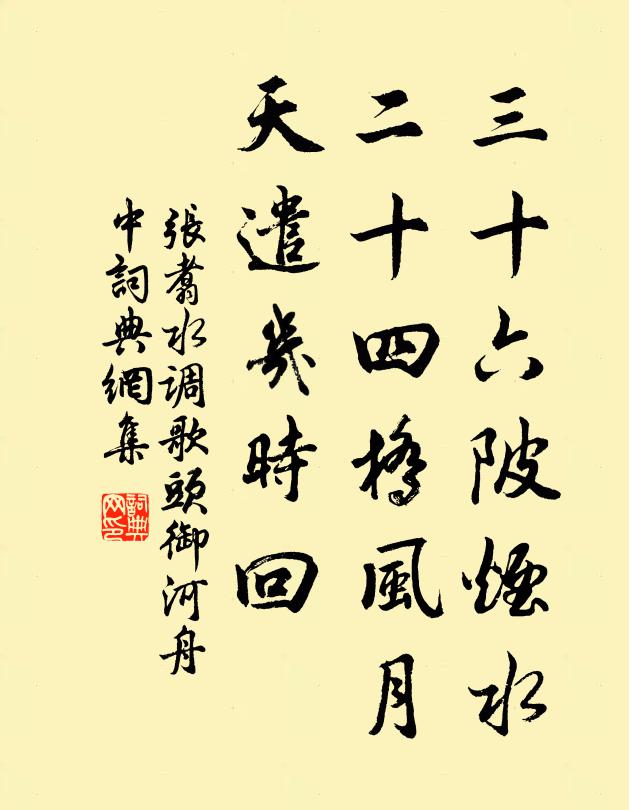 三十六陂煙水
二十四橋風月
天遣幾時回
張翥水调歌頭御河舟
中詞典網集
詞典網印